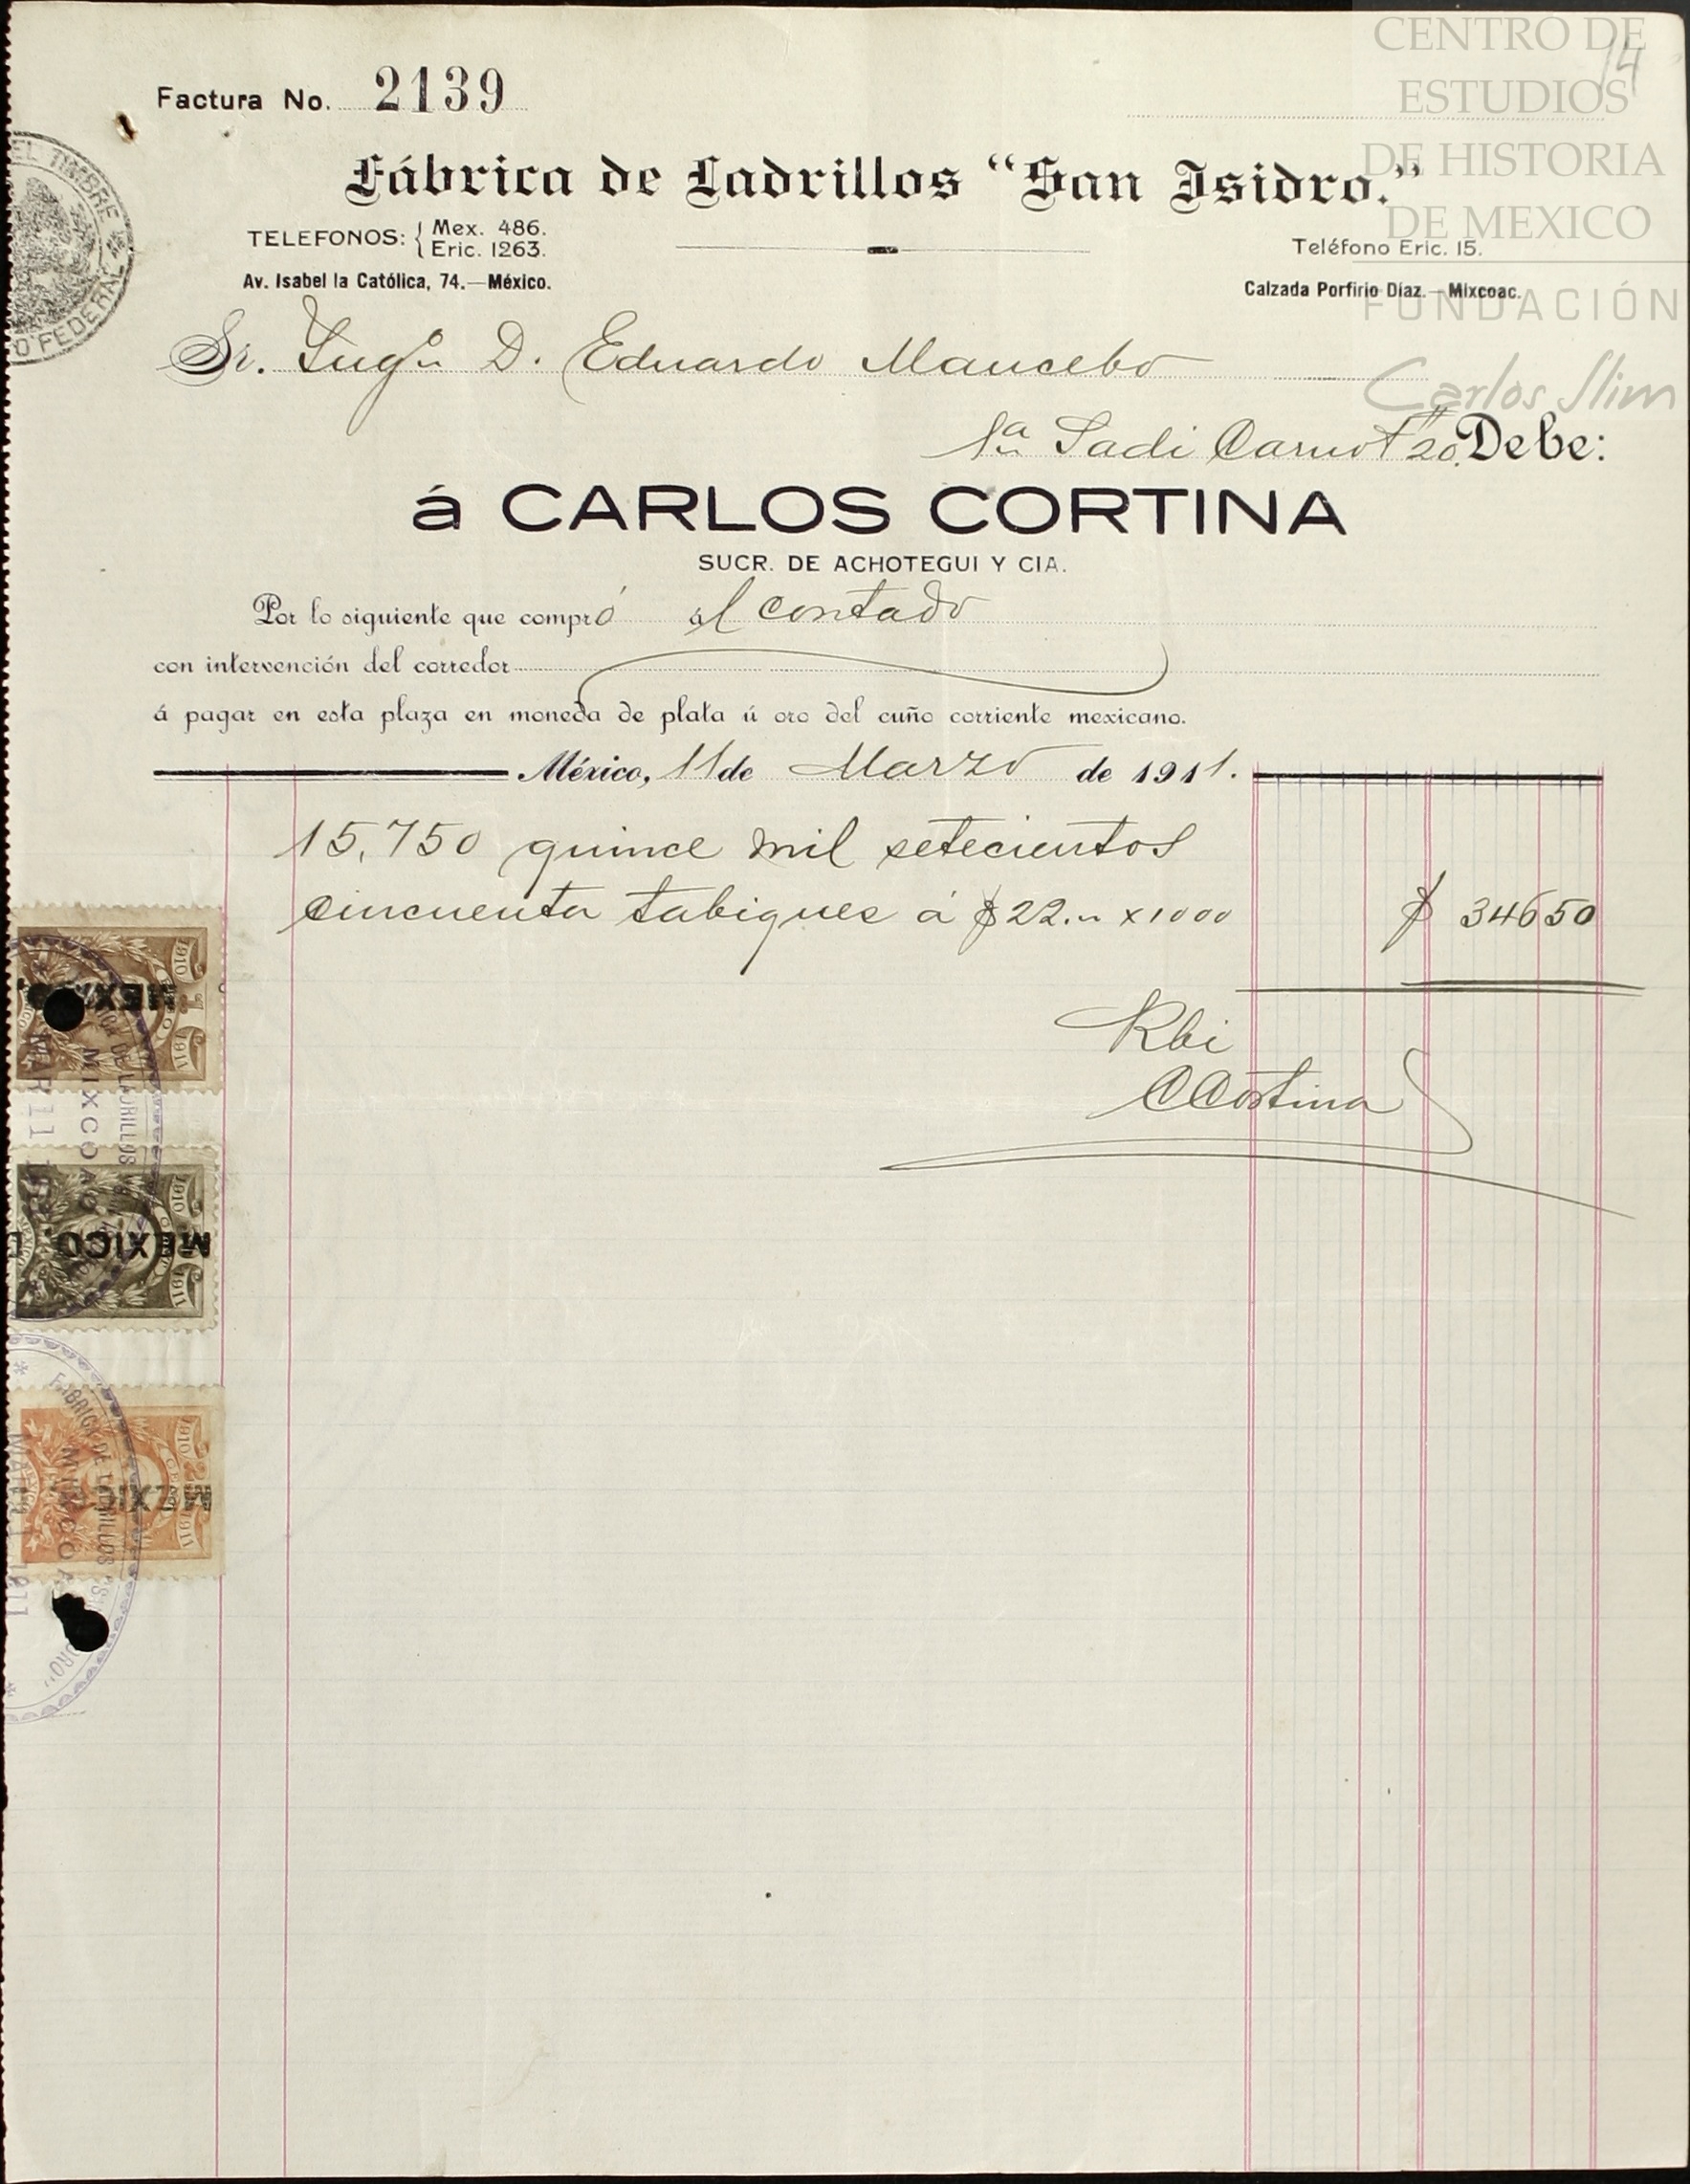 CENTRO DE
ESTUDIOS
DE HISTORIA
DE MEXICO
FUNDACIÓN
Carlos Slim
14
Factura No. 2139
Fábrica de Ladrillos “San Isidro.”
TELEFONOS: Mex. 486.
Eric. 1263.
Av. Isabel la Católica, 74.—México.
Teléfono Eric. 15.
Calzada Porfirio Díaz.—Mixcoac.
Sr. Ingn D. Eduardo Mancebo
1a Sadi Carnot #20. Debe:
á CARLOS CORTINA
SUCR. DE ACHOTEGUI Y CIA.
Por lo siguiente que compró al contado
con intervención del corredor
á pagar en esta plaza en moneda de plata ú oro del cuño corriente mexicano.
México, 11 de Marzo de 1911.
15,750 quince mil setecientos
cincuenta tabiques á $22.. x 1000 $ 346 50
Rbi
CCortina
EL TIMBRE
FEDERAL
1910 1911
MEXICO
FABRICA DE LADRILLOS
MIXCOAC
MAR 11
1910 1911
MEXICO
1910 1911
MEXICO
FABRICA DE LADRILLOS "SAN ISIDRO"
MIXCOAC
MAR 11 1911